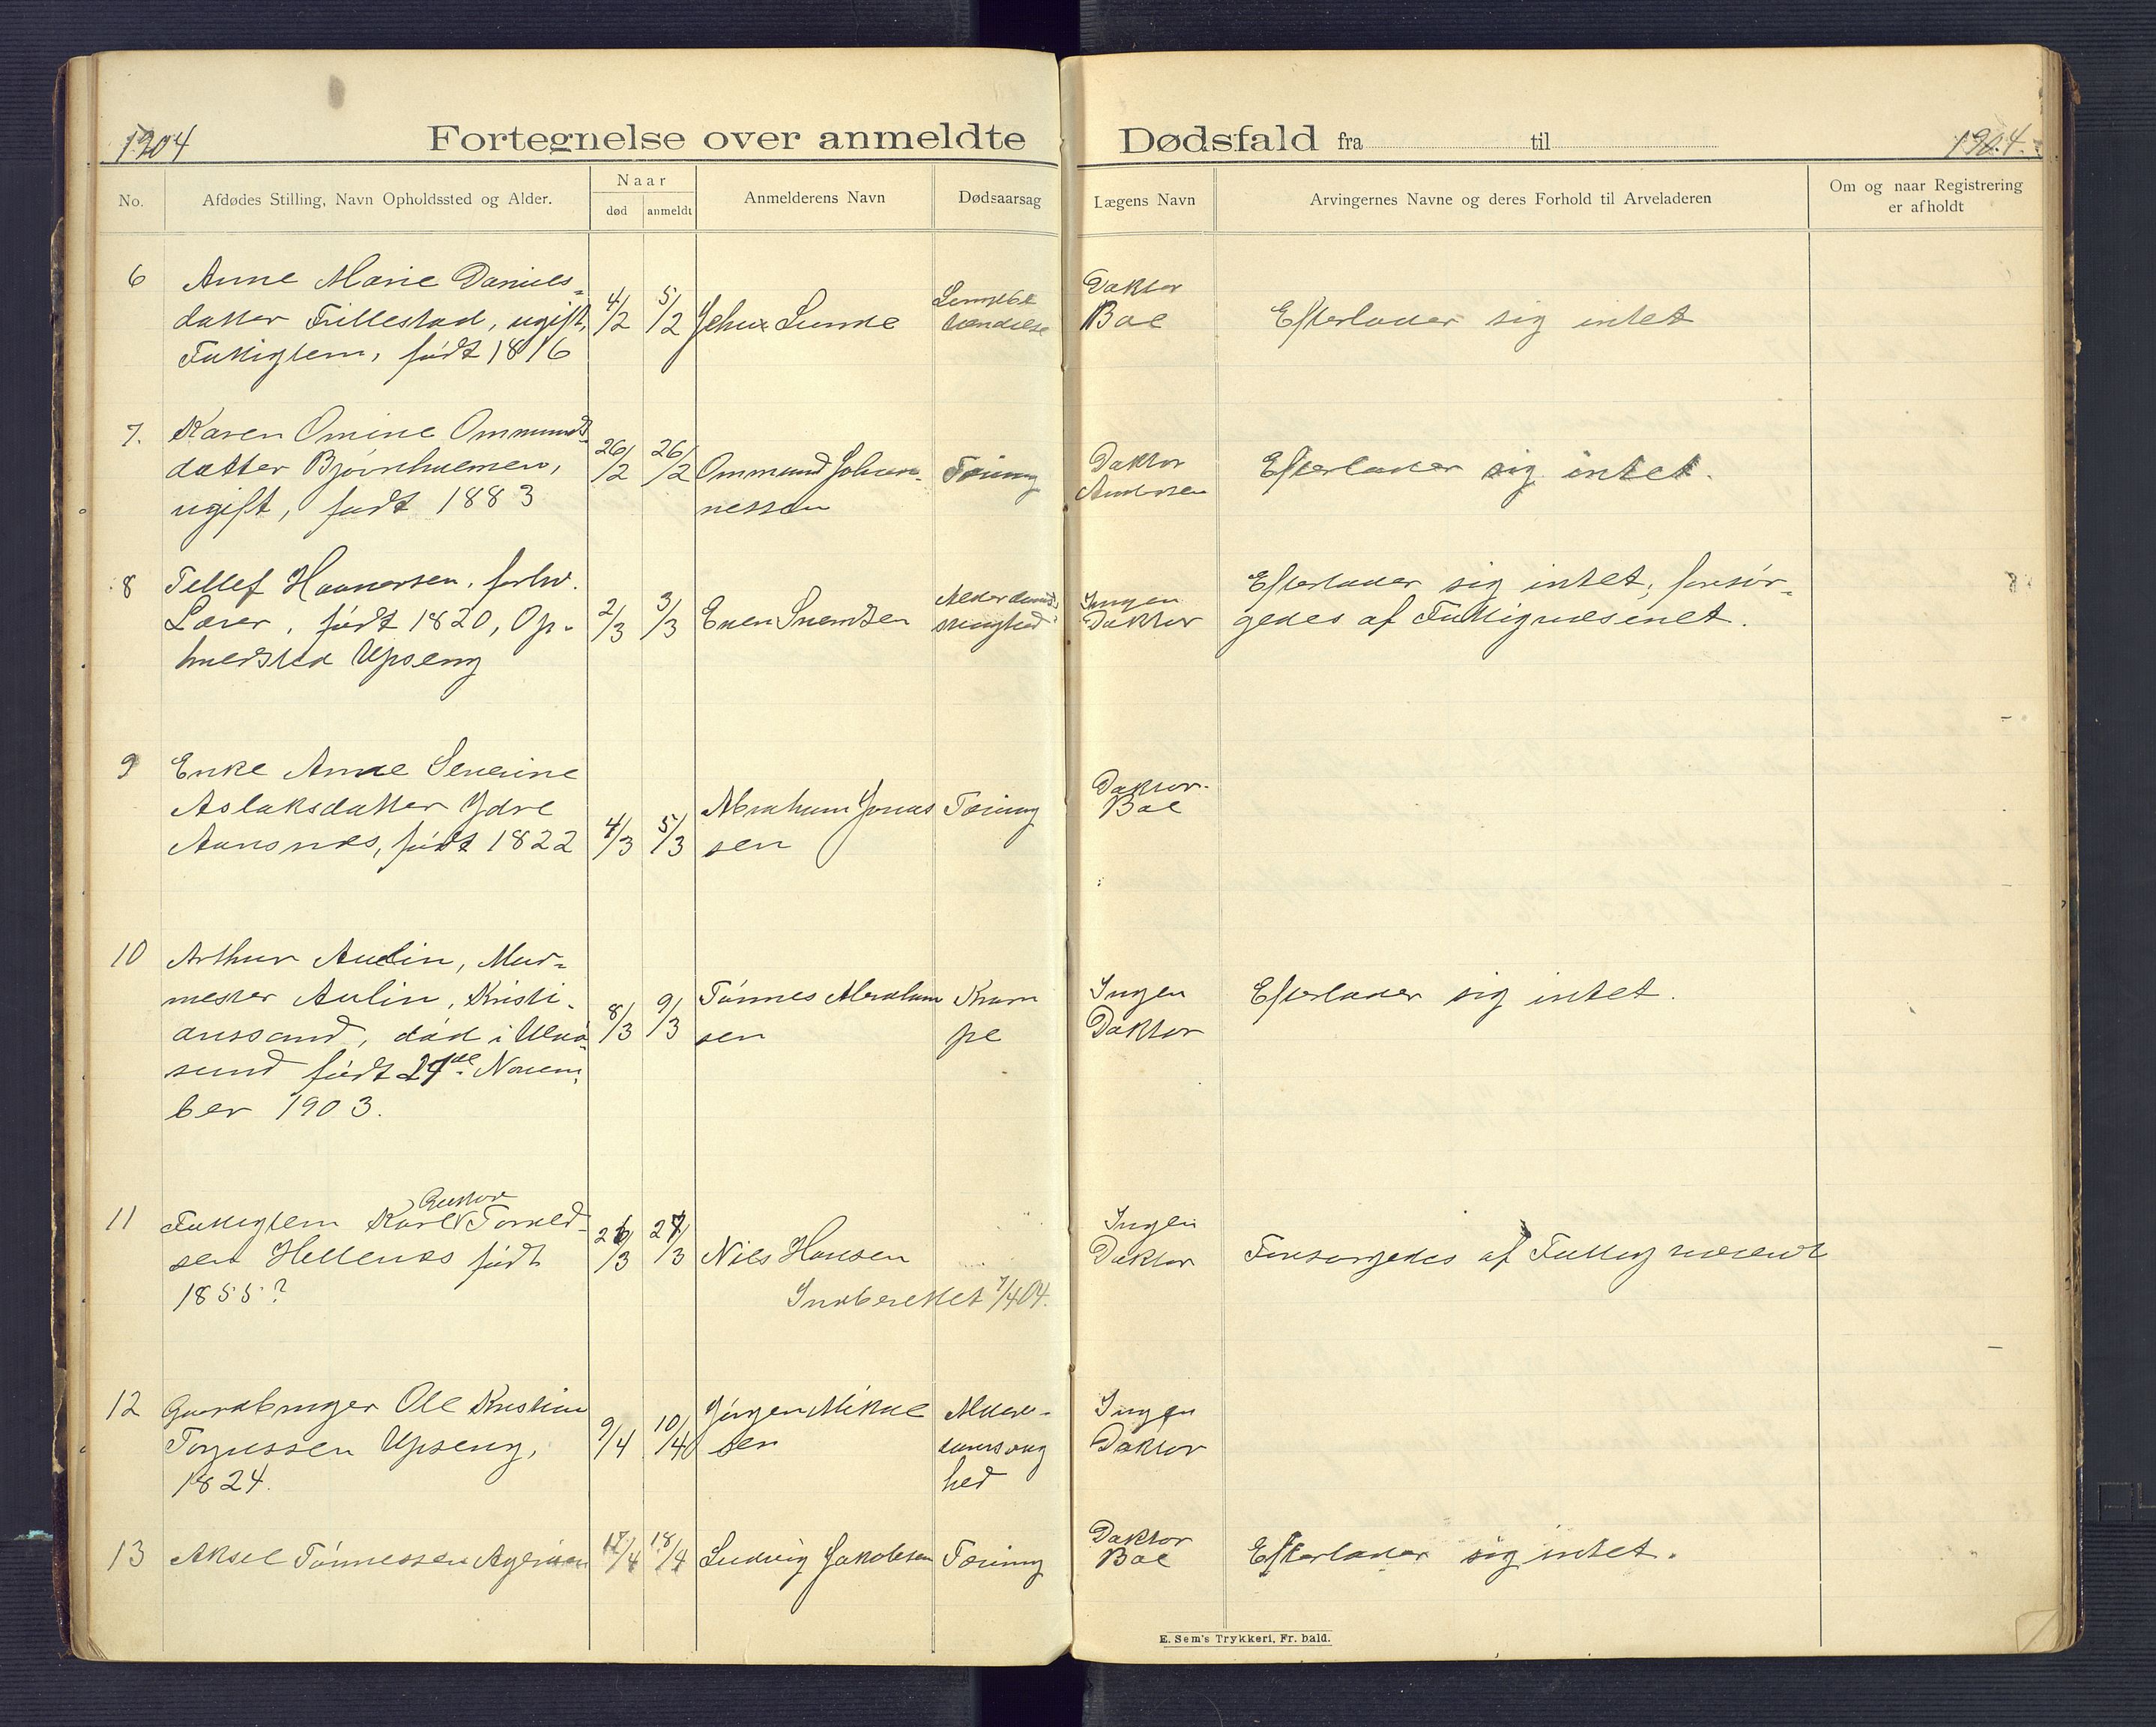 1904
Fortegnelse over anmeldte Dødsfald fra til
1904.
No. Afdødes Stilling, Navn Opholdssted og Alder. Naar død anmeldt Anmelderens Navn Dødsaarsag Lægens Navn Arvingernes Navne og deres Forhold til Arveladeren Om og naar Registrering er afholdt
6 Anne Marie Daniels-
datter Fillestad, ugift,
Fattiglem, født 1816
4/2 5/2 Jehu Sunde
Lungebe
tændelse
Doktor
Boe
Efterlader sig intet
7. Karen Omine Ommunds-
datter Bjørnhuemen,
ugift, født 1883
26/2 26/2 Ommund Johan-
nessen
Tæring
Doktor
Andersen
Efterlader sig intet.
8 Tellef Haaversen, forhv.
Lærer, født 1820, Op-
holdssted Upseng
2/3 3/3 Even Svendsen
Alderdoms
svaghed
Ingen
Doktor
Efterlader sig intet, forsør-
gedes af Fattigvæsenet.
9 Enke Anne Severine
Aslaksdatter Ydre
Aansnes, født 1822
4/3 5/3 Abraham Jonas
sen
Tæring
Doktor
Boe
10 Arthur Aulin, Mur-
mester Aulin, Kristi-
anssand, død i
sund født 24de Novem-
ber 1903.
8/3 9/3 Tønnes Abraham
sen
Kram
pe
Ingen
Doktor
Efterlader sig intet.
11 Fattiglem Karl Gustav
sen Hellenes født
1855?
26/3 27/3 Nils Hansen
Indberettet 7/4 04.
Ingen
Doktor
Forsørgedes af Fattigvæsenet
12 Gaardbruger Ole Kristian
Torjussen Upseng,
1824.
9/4 10/4 Jørgen Mikkel
sen
Alder-
domssvag
hed
Ingen
Doktor
13 Aksel Tønnessen
17/4 18/4 Ludvig Jakobsen Tæring
Doktor
Boe
Efterlader sig intet.
E. Sem's Trykkeri, Fr.hald.